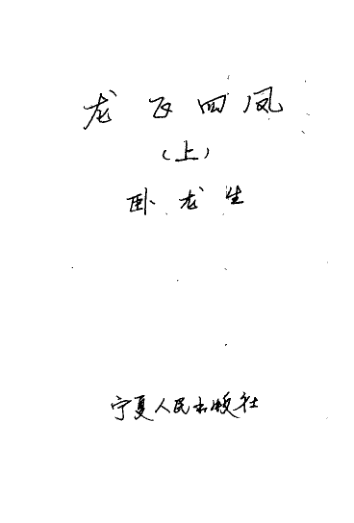 龙飞四凤
（上）
卧龙生
宁夏人民出版社